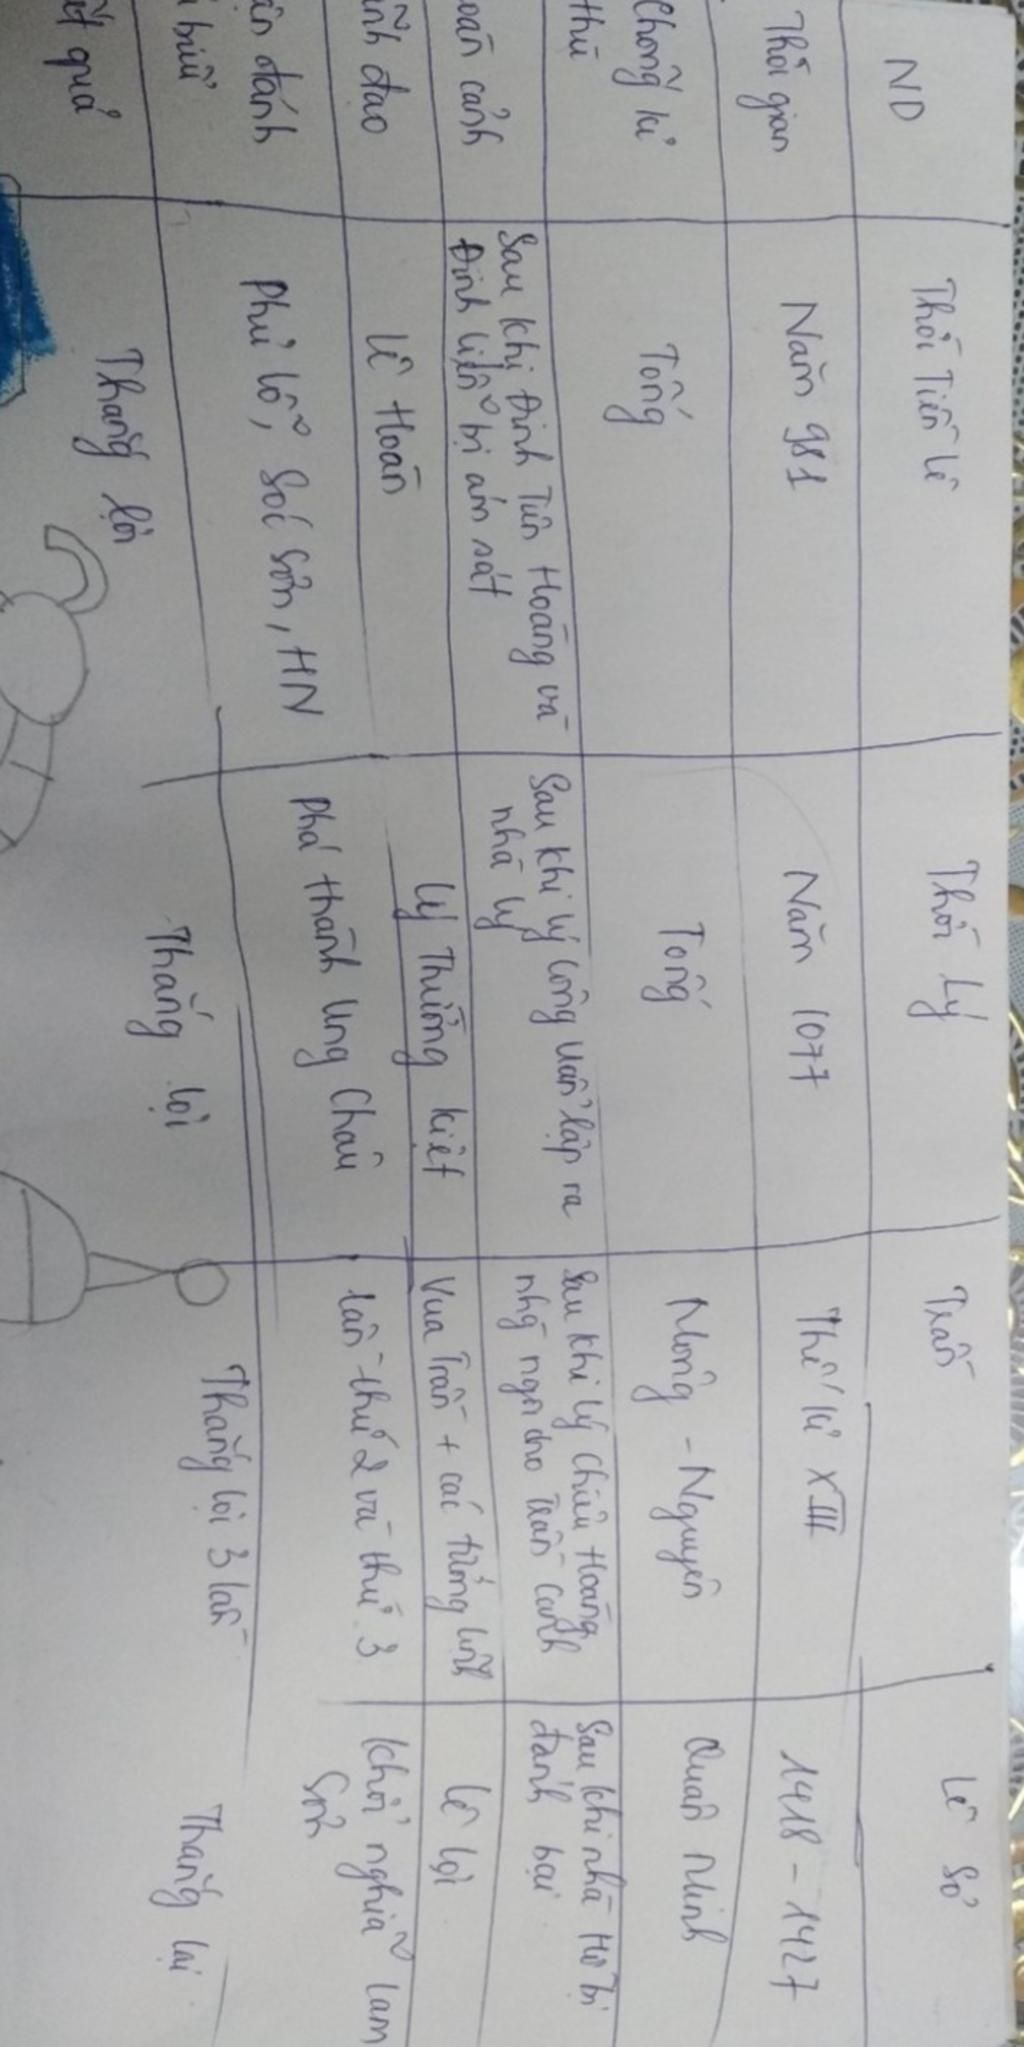 ND
Thời Tiền Lê
Thời Lý
Trần
Lê Sơ
Thời gian
Năm 981
Năm 1077
Thế kỉ XIII
1418 - 1427
Chống kẻ
thù
Tống
Tống
Mông - Nguyên
Quân Minh
oàn cảnh
Sau khi Đinh Tiên Hoàng và
Đinh Liễn bị ám sát
Sau khi Lý Công Uẩn lập ra
nhà Lý
Sau khi Lý Chiêu Hoàng
nhg ngôi cho Trần Cảnh
Sau khi nhà Hồ bị
đánh bại
ãnh đạo
Lê Hoàn
Lý Thường Kiệt
Vua Trần + các tướng lĩnh
Lê Lợi
ận đánh
biểu
Phù Lỗ, Sóc Sơn, HN
Phá thành Ung Châu
lần thứ 2 và thứ 3
Khởi nghĩa Lam
Sơn
ết quả
Thắng lợi
Thắng lợi
Thắng lợi 3 lần
Thắng lại